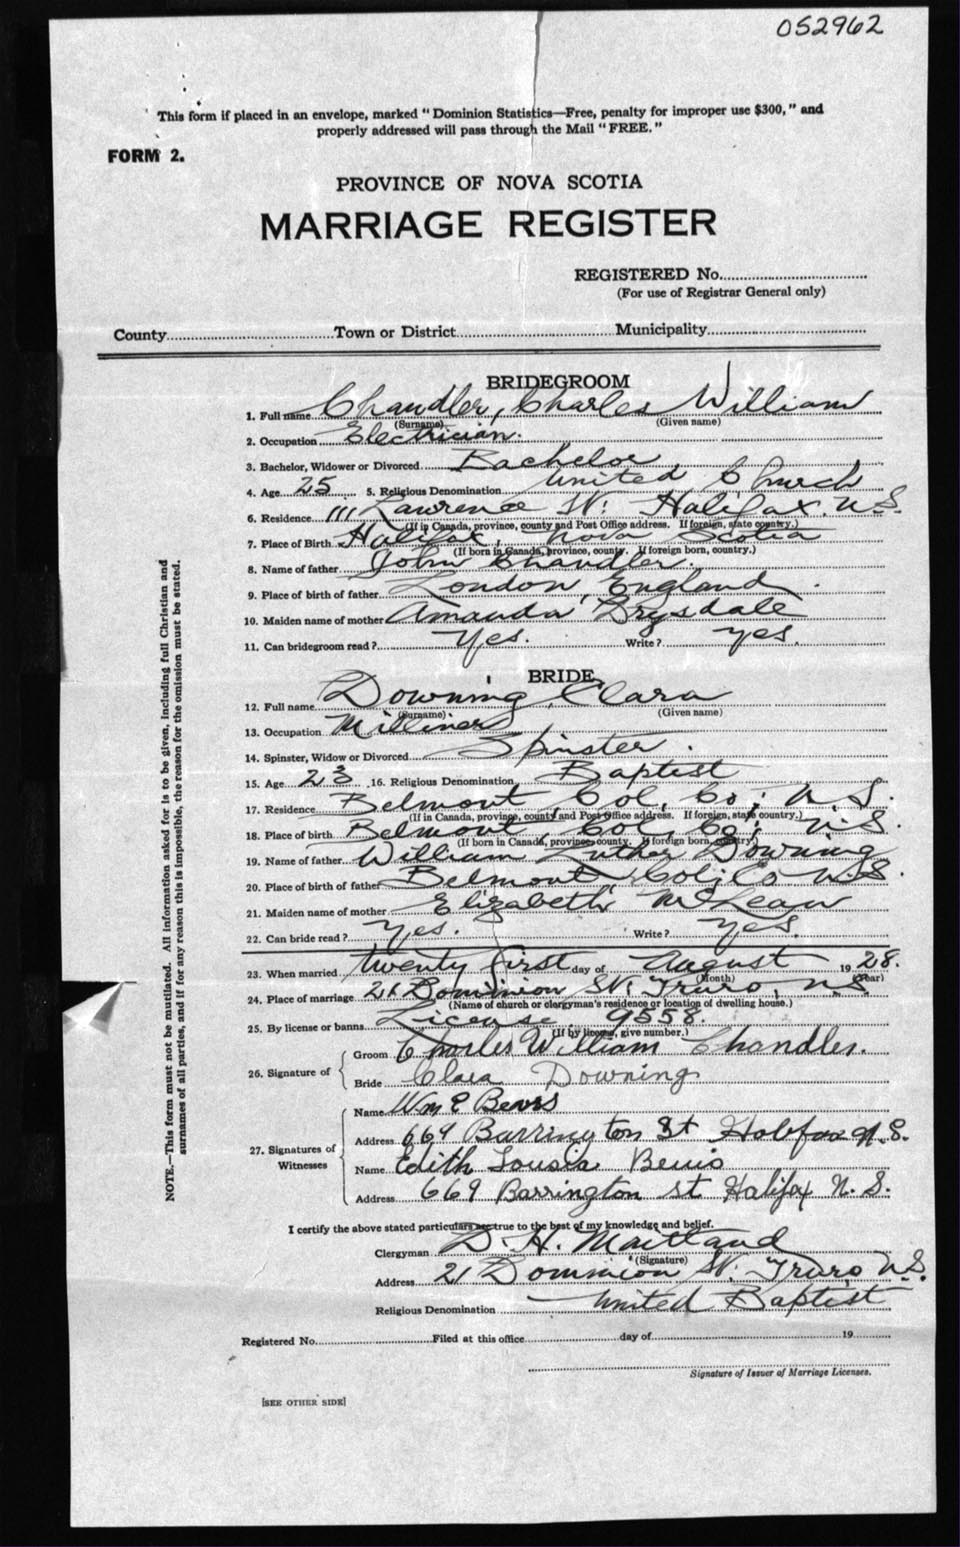 052962
This form if placed in an envelope, marked "Dominion Statistics—Free, penalty for improper use $300," and
properly addressed will pass through the Mail "FREE."
FORM 2.
PROVINCE OF NOVA SCOTIA
MARRIAGE REGISTER
REGISTERED No.
(For use of Registrar General only)
County Town or District Municipality
BRIDEGROOM
1. Full name Chandler, Charles William
(Surname) (Given name)
2. Occupation Electrician.
3. Bachelor, Widower or Divorced Bachelor
4. Age 25 5. Religious Denomination United Church
6. Residence 111 Lawrence St. Halifax. N.S.
(If in Canada, province, county and Post Office address. If foreign, state country.)
7. Place of Birth Halifax, Nova Scotia
(If born in Canada, province, county. If foreign born, country.)
8. Name of father John Chandler.
9. Place of birth of father London, England.
10. Maiden name of mother Amanda Drysdale
11. Can bridegroom read? Yes. Write? yes.
BRIDE
12. Full name Downing, Clara
(Surname) (Given name)
13. Occupation Milliner
14. Spinster, Widow or Divorced Spinster.
15. Age 23 16. Religious Denomination Baptist
17. Residence Belmont, Col. Co; N.S.
(If in Canada, province, county and Post Office address. If foreign, state country.)
18. Place of birth Belmont, Col. Co; N.S.
(If born in Canada, province, county. If foreign born, country.)
19. Name of father William Luther Downing
20. Place of birth of father Belmont, Col; Co N.S.
21. Maiden name of mother Elizabeth McLean
22. Can bride read? Yes. Write? Yes.
23. When married twenty first day of August 1928.
(Month) (Year)
24. Place of marriage 21 Dominion St. Truro, N.S
(Name of church or clergyman's residence or location of dwelling house.)
25. By license or banns License 9558.
(If by license, give number.)
26. Signature of Groom Charles William Chandler.
Bride Clara Downing
27. Signatures of Witnesses Name Wm E
Address 669 Barrington St Halifax N.S.
Name Edith Louisa
Address 669 Barrington st Halifax N. S.
I certify the above stated particulars are true to the best of my knowledge and belief.
Clergyman D. H. Maitland
(Signature)
Address 21 Dominion St. Truro N.S.
Religious Denomination United Baptist
Registered No. Filed at this office day of 19
Signature of Issuer of Marriage Licenses.
[SEE OTHER SIDE]
NOTE.—This form must not be mutilated. All information asked for is to be given, including full Christian and
surnames of all parties, and if for any reason this is impossible, the reason for the omission must be stated.